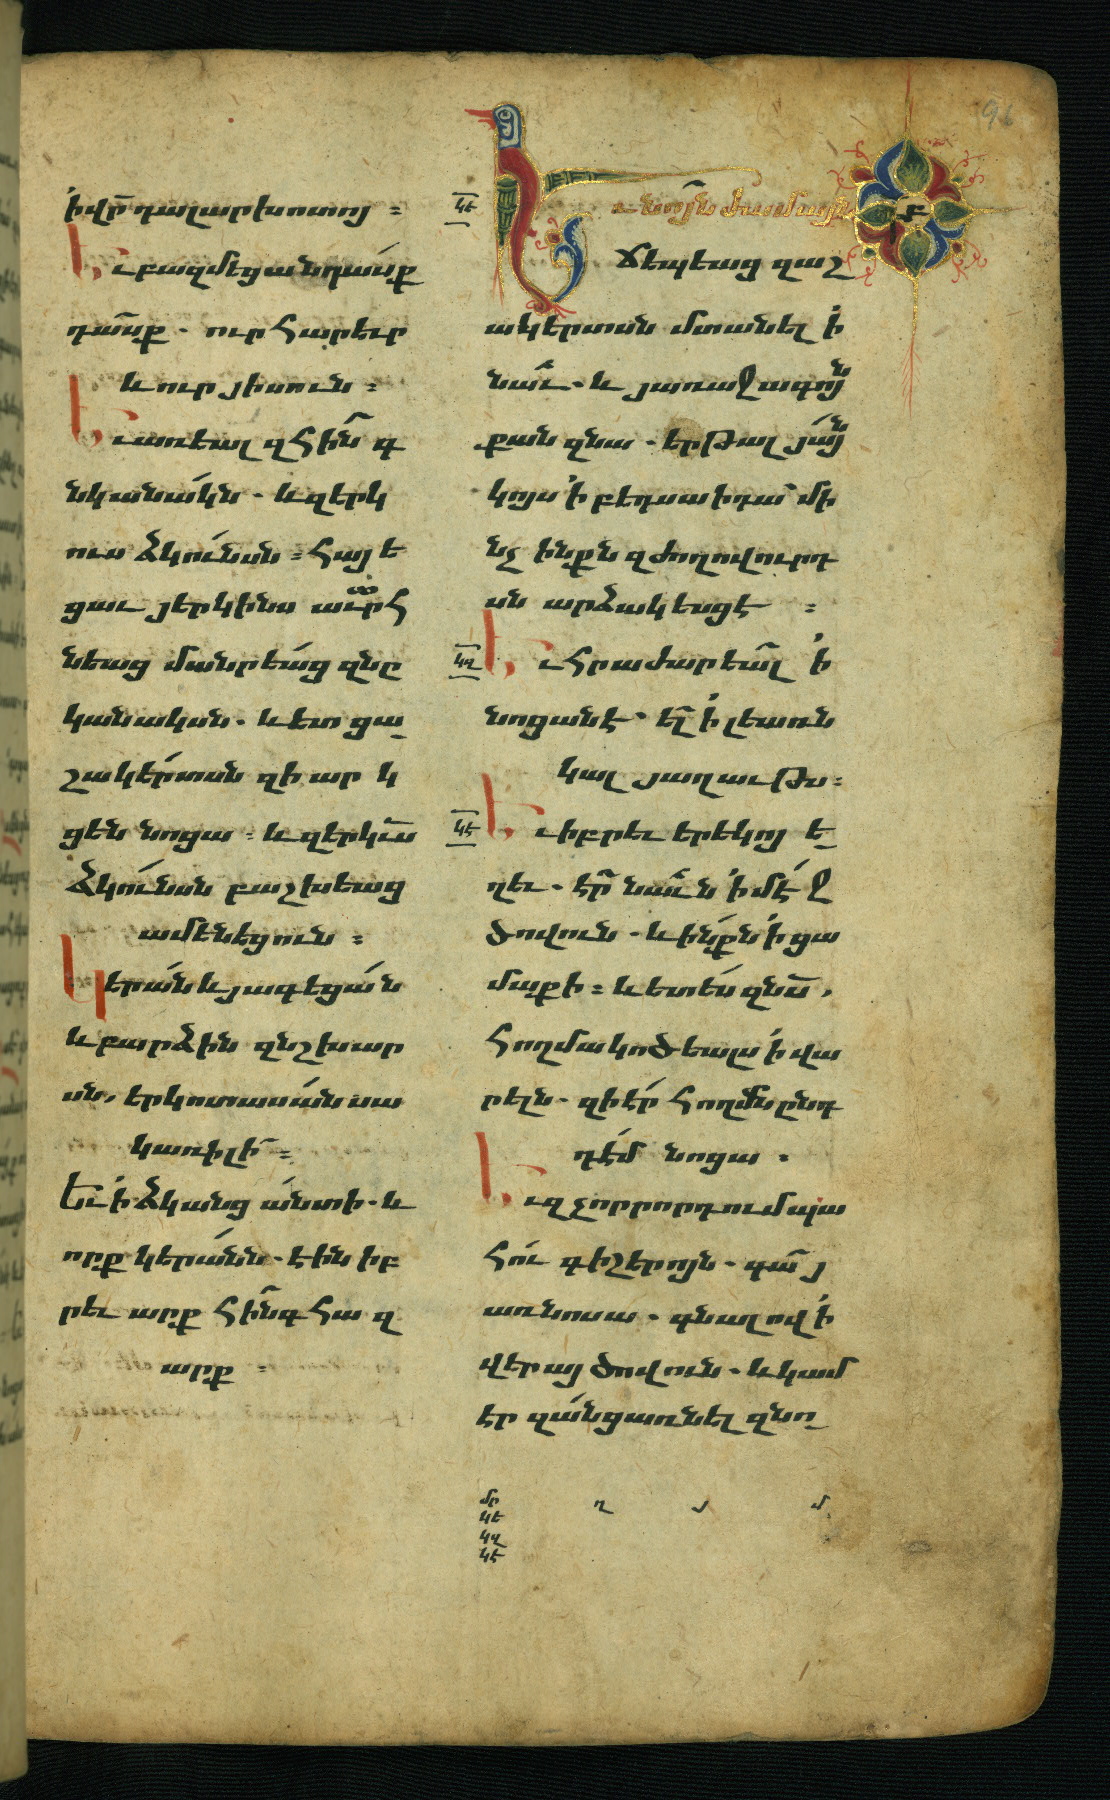 ի վր դալար խոտոյ ։
Եւ բազմեցան դասք
դասք . ուր հարեւր
և ուր յիսուն ։
Եւ առեալ զհինգ
նկանակն . և զերկ
ուս ձկունսն ։ հայե
ցաւ յերկինս աւրհ
նեաց մանրեաց զնը
կանակսն . և ետ ցա
շակերտսն զի ար կ
ցեն նոցա ։ և զերկս
ձկունսն բաշխեաց
ամենեցուն ։
Կերան և յագեցան
և բարձին զնշխար
սն, երկոտասան սա
կառի լի ։
Եւ ի ձկանց անտի . և
որք կերանն . էին իբ
րեւ արք հինգ հազ
արք ։
կե
Եւ նոյն ժամայն
ճեպեաց զաշ
ակերտսն մտանել ի
նաւ . և յառաջագոյն
քան զնա . երթալ յայն
կոյս ի բեդսաիդա մի
նչ ինքն զժողովուրդ
սն արձակեսցէ ։
կզ
Եւ հրաժարեալ ի
նոցանէ . ել ի լեառն
կալ յաղաւթս ։
կէ
Եւ իբրեւ երեկոյ ե
ղեւ . էր նաւն ի մէջ
ծովուն . և ինքն ի ցա
մաքի ։ և ետես զնս,
հողմակոծեալս ի վա
րելն . զի էր հողմն ընդ
դէմ նոցա .
Եւ զչորրորդում պա
հու գիշերոյն . գա յ
առ նոսա . գնալով ի
վերայ ծովուն . և կամ
էր զանց առնել զնո
մր ղ յ մ
կե
կզ
կէ
բ
96